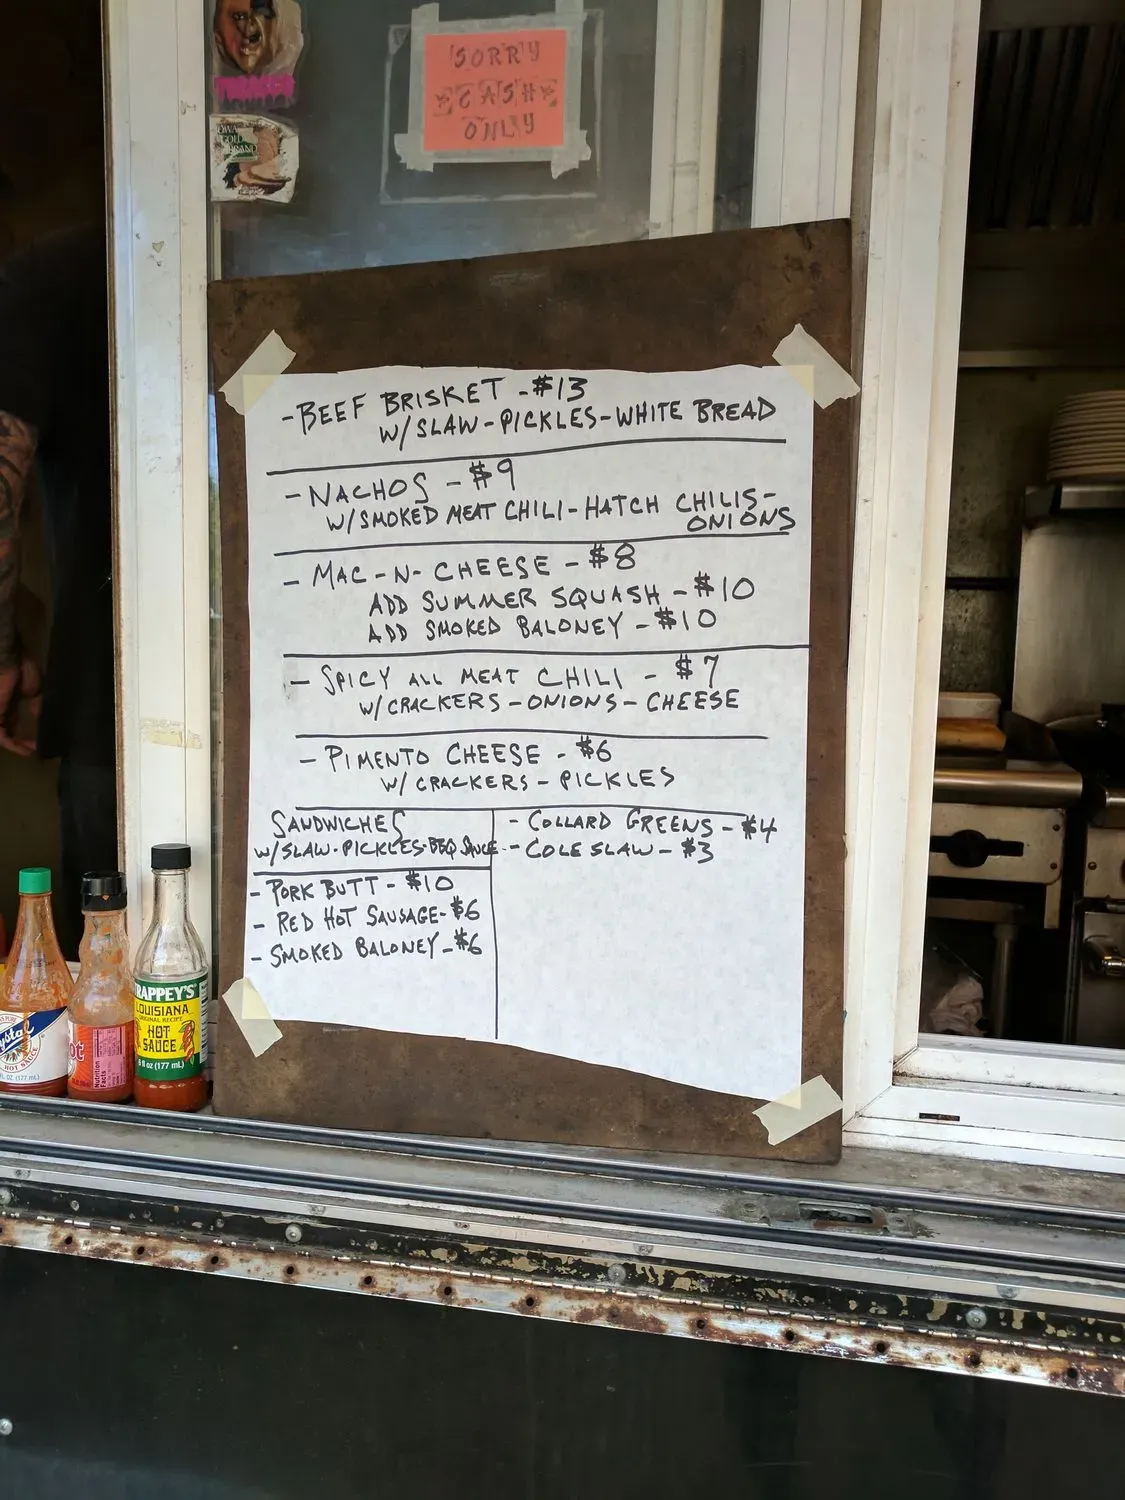 TOBACCO
IOWA
GOLD
BRAND
SORRY
CASH
ONLY
-BEEF BRISKET -$13
W/SLAW-PICKLES-WHITE BREAD
-NACHOS -$9
W/SMOKED MEAT CHILI-HATCH CHILIS-
ONIONS
- MAC-N-CHEESE -$8
ADD SUMMER SQUASH -$10
ADD SMOKED BALONEY -$10
- SPICY ALL MEAT CHILI - $7
W/CRACKERS-ONIONS-CHEESE
- PIMENTO CHEESE - $6
W/ CRACKERS - PICKLES
SANDWICHES
W/SLAW-PICKLES-BBQ SAUCE
- PORK BUTT - $10
- RED HOT SAUSAGE-$6
- SMOKED BALONEY-$6
- COLLARD GREENS - $4
- COLE SLAW - $3
Crystal
HOT SAUCE
FL OZ (177 mL)
ot
Nutrition
Facts
RAPPEY'S
LOUISIANA
ORIGINAL RECIPE
HOT
SAUCE
6 fl oz (177 mL)